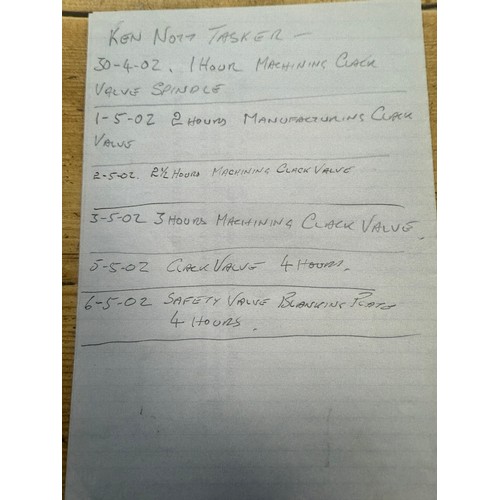 KEN NOTT TASKER -
30-4-02. 1 HOUR MACHINING CLACK
VALVE SPINDLE
1-5-02 2 HOURS MANUFACTURING CLACK
VALVE
2-5-02. 2½ HOURS MACHINING CLACK VALVE
3-5-02 3 HOURS MACHINING CLACK VALVE.
5-5-02 CLACK VALVE 4 HOURS.
6-5-02 SAFETY VALVE BLANKING PLATE
4 HOURS.